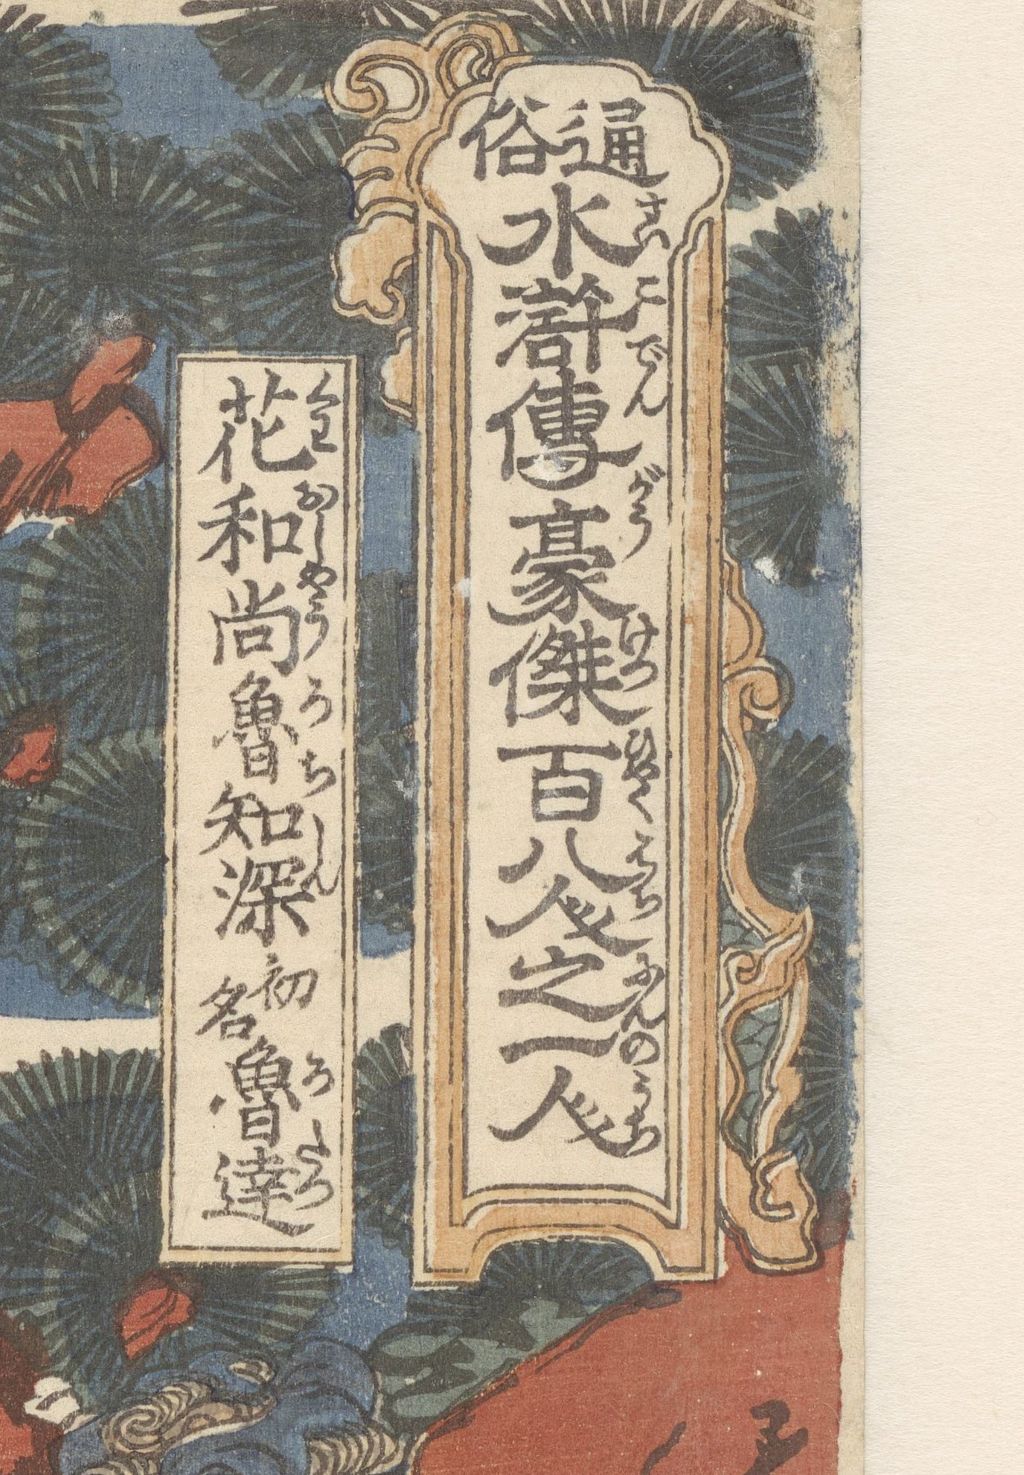 通俗
水滸傳豪傑百八人之一人
すいこでんがうけつひやくはちにんのうち
花和尚魯知深初名魯達
くわおしやうろちしんろたつ